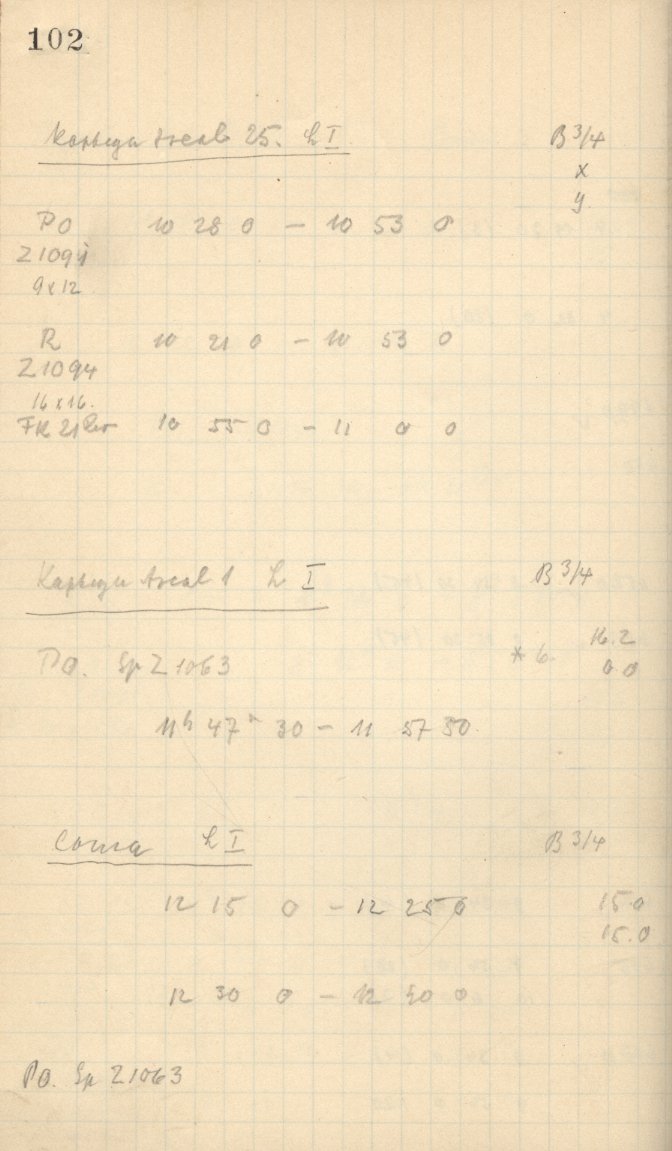 102
25. h I
B 3/4
x
y
PO 10 28 0 – 10 53 0
Z 1094
9x12
R 10 21 0 – 10 53 0
Z 1094
16x16.
10 55 0 – 11 0 0
1 h I B 3/4
PO. Sp Z 1063 * 6. 16.2
0 0
11h 47m 30 – 11 57 30
Coma h I B 3/4
12 15 0 – 12 25 0 15.0
15.0
12 30 0 – 12 40 0
PO. Sp Z 1063